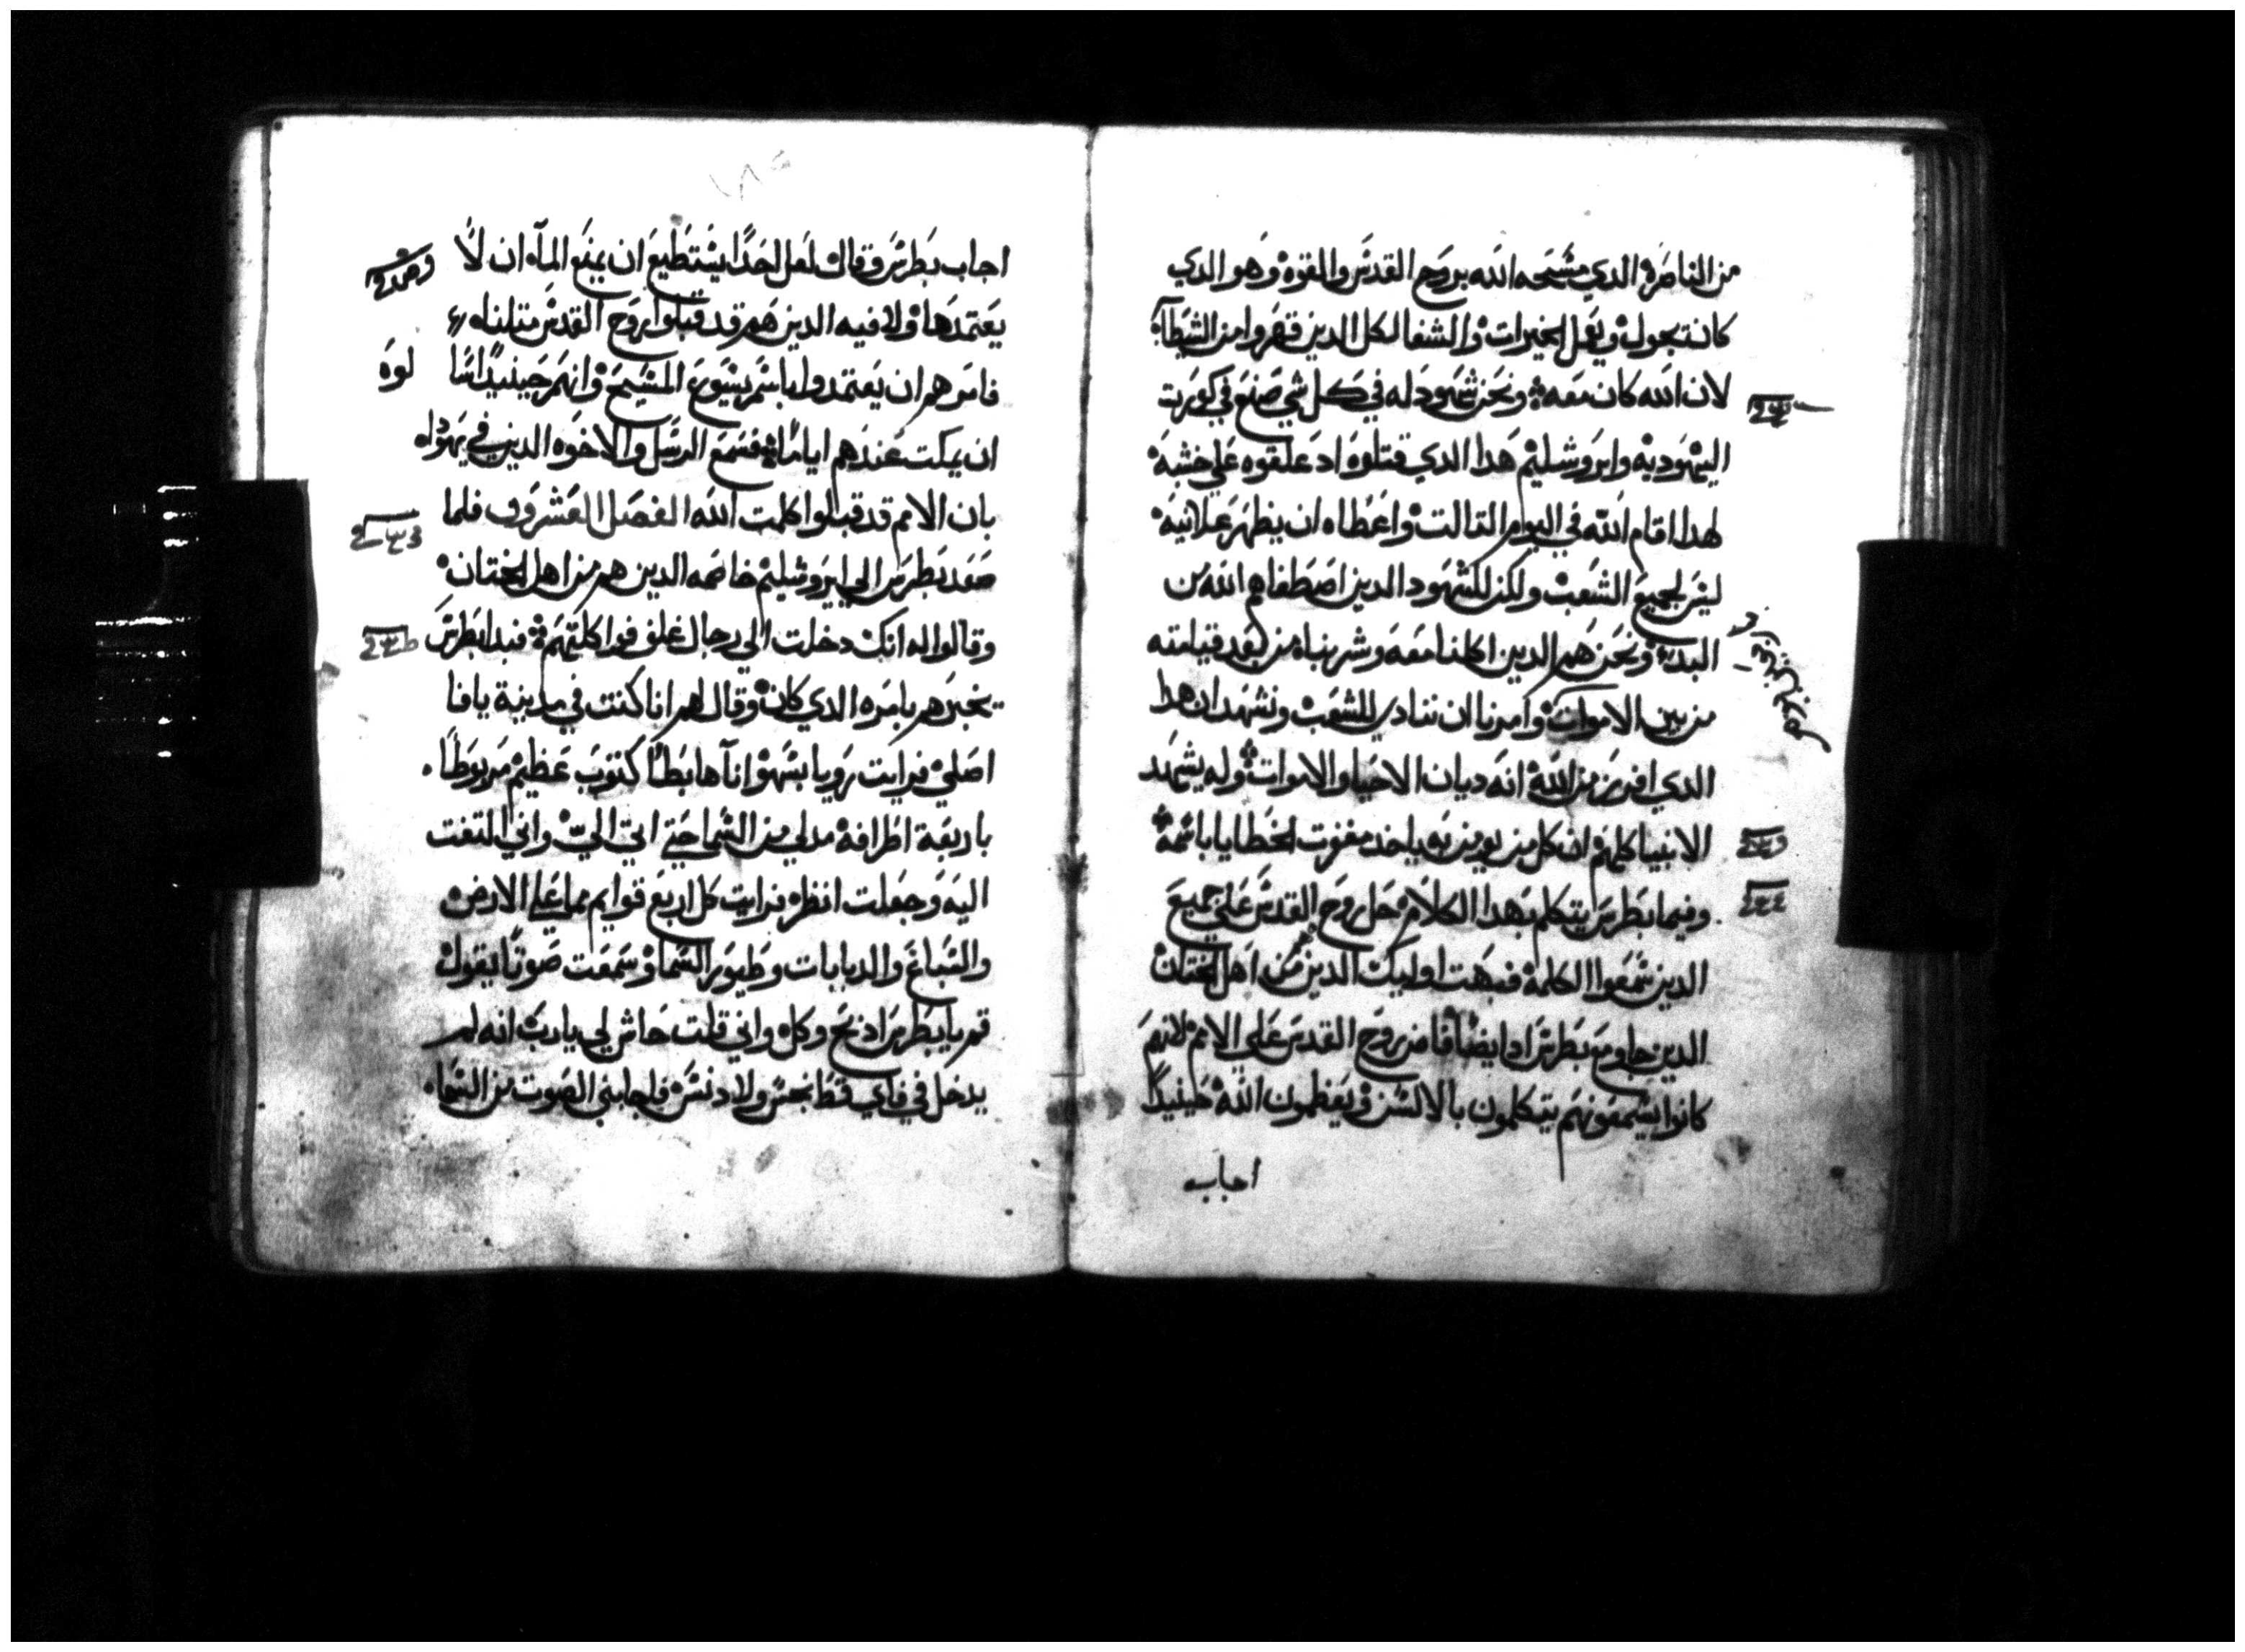 من الناصرة الدي مسحه الله بروح القدس والقوة وهو الدي
كانت يجول ويفعل الخيرات والشفا لكل الدين قهروا من الشيطان
لان الله كان معه ونحن شهود له في كل شي صنع في كورت
اليهودية وايروشليم هدا الدي قتلوه اد علقوه علي خشبه
لهدا اقام الله في اليوم التالت واعطاه ان يظهر علانيه
ليس لجميع الشعب ولكن للشهود الدين اصطفاهم الله من
البدء ونحن هم الدين اكلنا معه وشربناه من بعد قيامته
من بين الاموات وامرنا ان ننادي للشعب ونشهد ان هدا
الدي افرز من الله انه ديان الاحيا والاموات وله يشهد
الانبيا كلهم ان كل من يومن به ياخد مغفرت الخطايا باسمه
وفيما بطرس يتكلم بهدا الكلام حل روح القدس علي جميع
الدين سمعوا الكلمة فبهت اوليك الدين هم من اهل الختان
الدين جاو مع بطرس اد ايضا فاض روح القدس علي الامم لانهم
كانوا يسمعونهم يتكلمون بالالسن ويعظمون الله حينيدا
اجاب
اجاب بطرس وقال لعل احدا يستطيع ان يمنع الماء ان لا
يعتمدها ولا فيه الدين هم قد قبلوا روح القدس متلنا
فامرهم ان يعتمدوا باسم يسوع المسيح وانهم حينيدا سالوه
ان يمكت عندهم اياما فسمع الرسل والاخوه الدين في يهودا
بان الامم قد قبلوا كلمت الله الفصل العشرون فلما
صعد بطرس الي ايروشليم خاصمه الدين هم من اهل الختان
وقالوا له انك دخلت الي رجال غلف فواكلتهم فبدا بطرس
يخبرهم بامره الدي كان وقال لهم انا كنت في مدينة يافا
اصلي فرايت رويا بسهو اناء هابطا كتوب عظيم مربوطا
باربعة اطرافه مدلي من السما حتي اتي الي واني التفت
اليه وجعلت انظره فرايت كل اربع قوايم مما علي الارض
والسباع والدبابات وطيور السما وسمعت صوتا يقول
قم يا بطرس ادبح وكل واني قلت حاش لي يا رب انه لم
يدخل في فاي قط نجس ولا دنس فاجابني الصوت من السماء